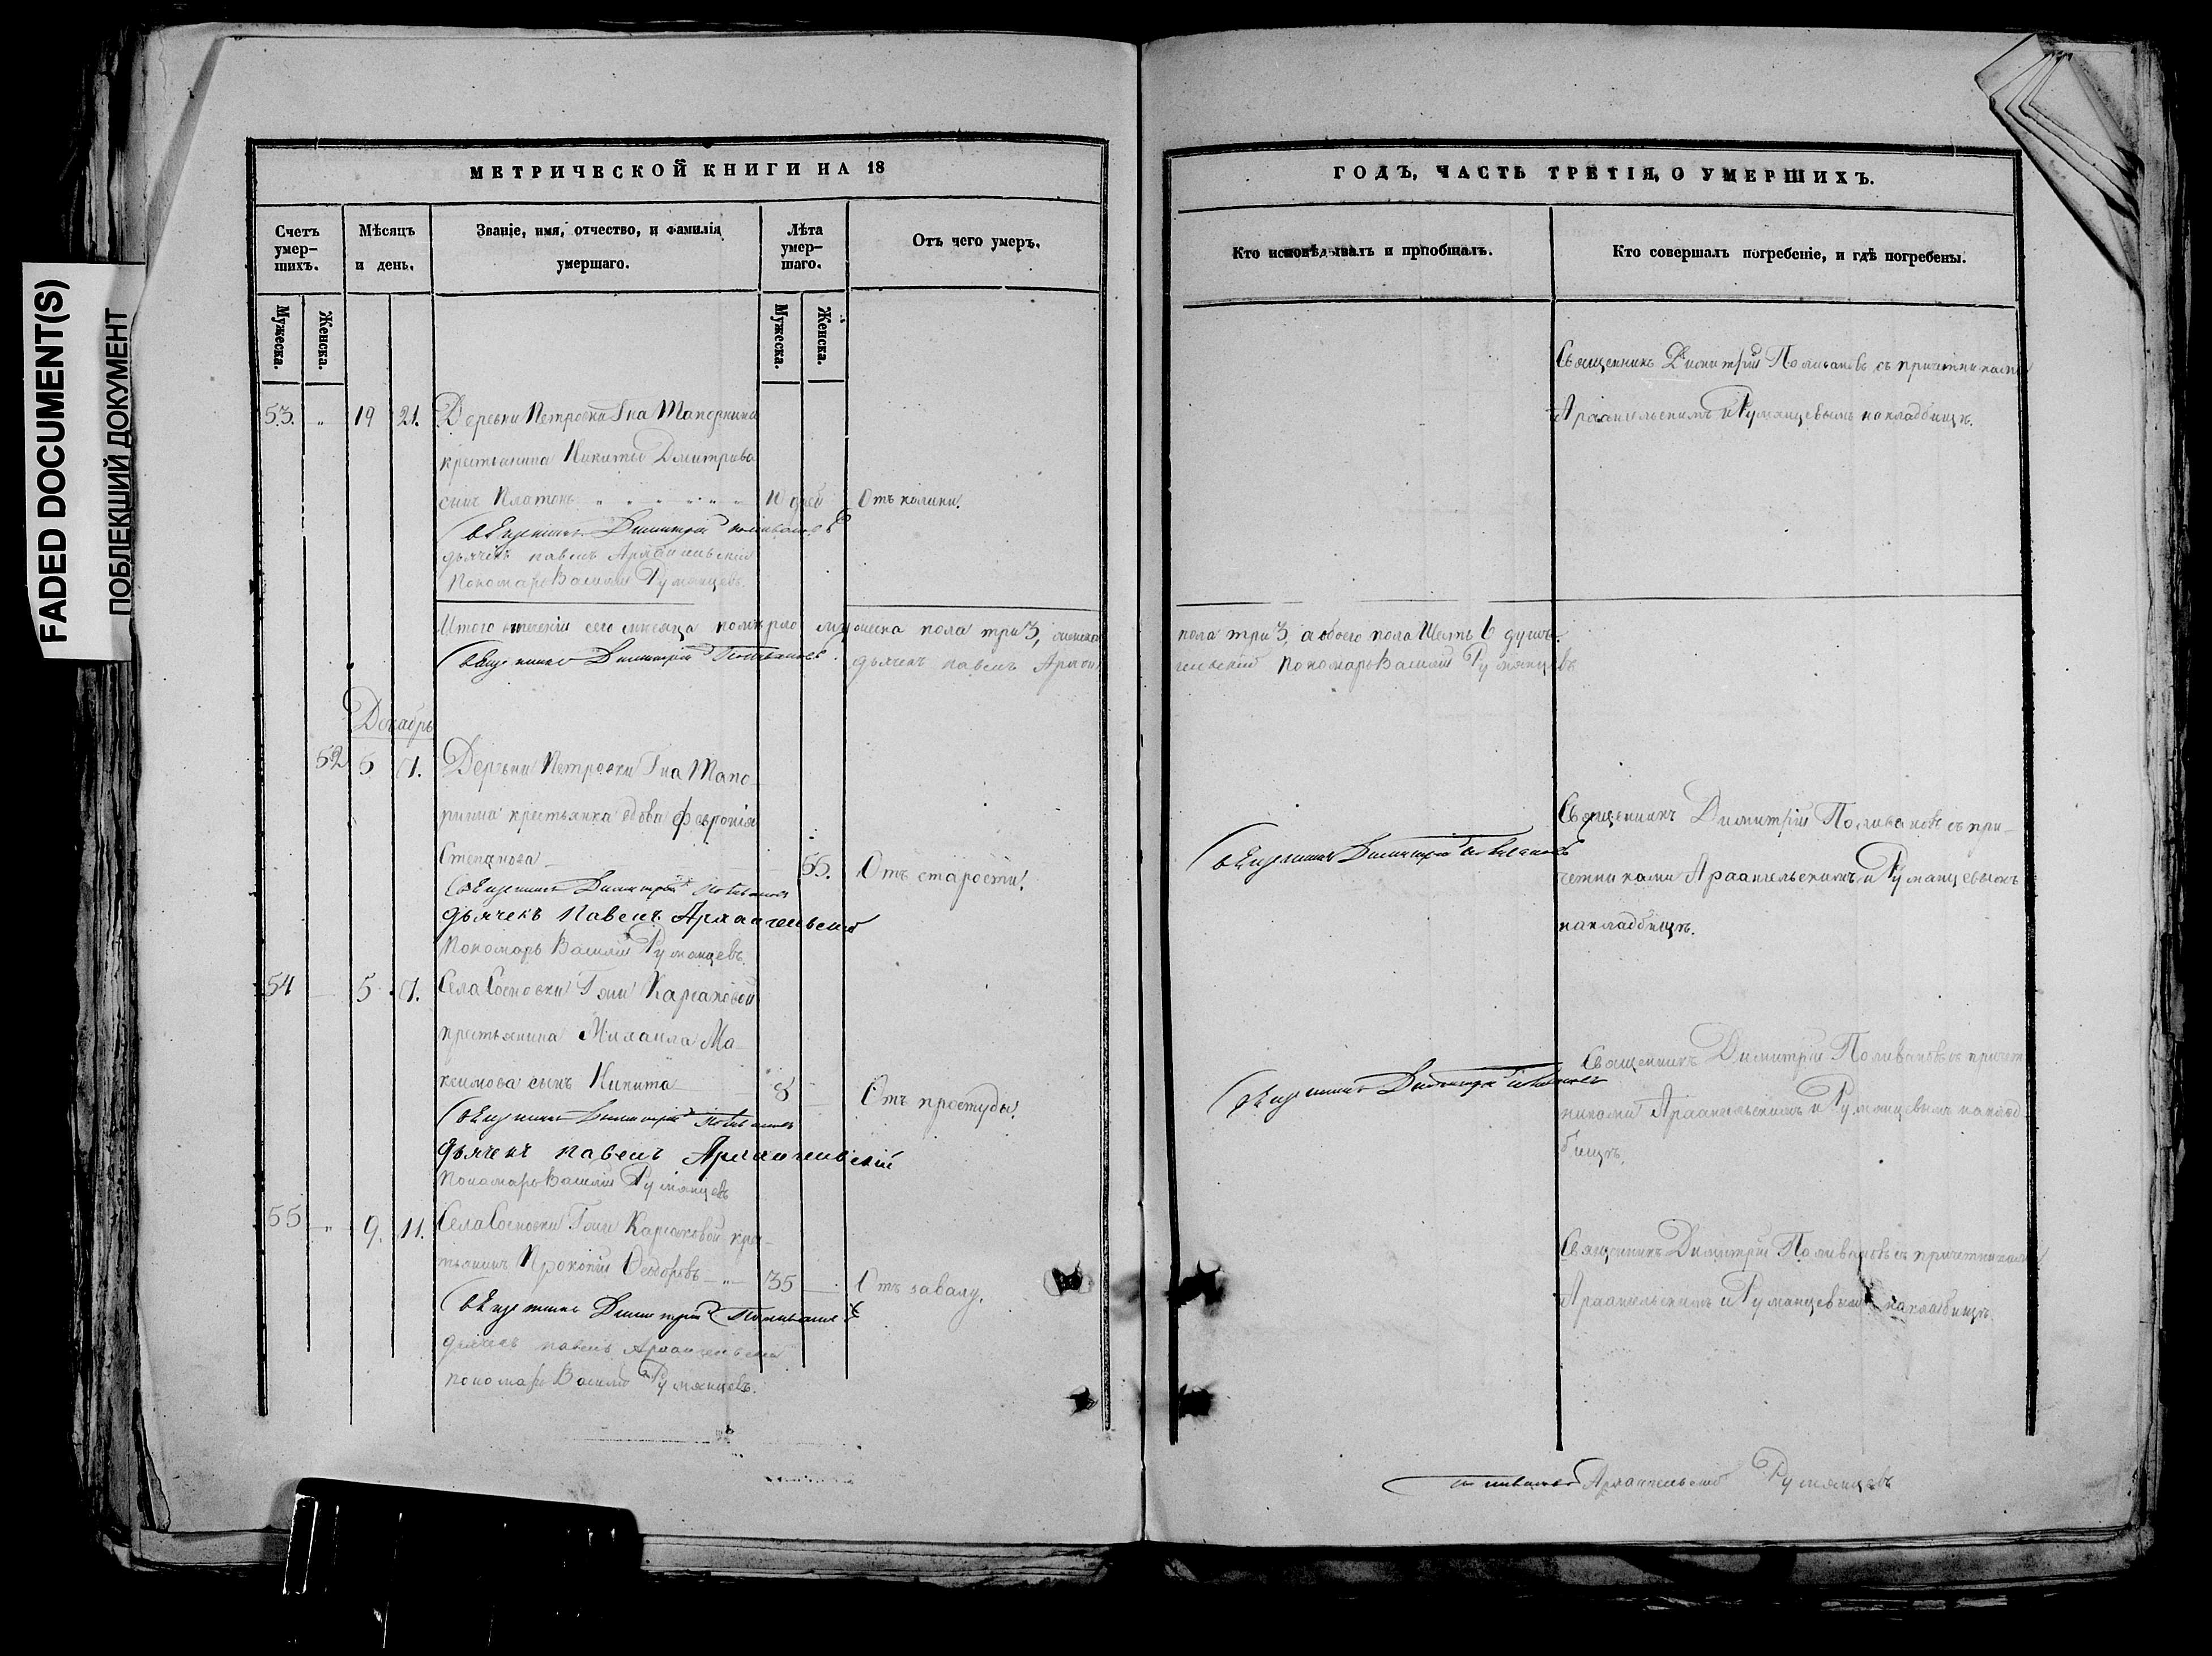 FADED DOCUMENT(S)
ПОБЛЕКШИЙ ДОКУМЕНТ
МЕТРИЧЕСКОЙ КНИГИ НА 18
Счетъ умер-шихъ.
Мѣсяцъ и день.
Званіе, имя, отчество, и фамилія умершаго.
Лѣта умер-шаго.
Отъ чего умеръ.
Мужеска.
Женска.
Мужеска.
Женска.
53. " 19 21. Деревни Петровки Гна Тапоркина
крестьянина Никиты Дмитрива
сынъ Платонъ 10 дней Отъ колики.
Священникъ Димитрій Поливановъ
дьячекъ Павелъ Архангельскій
Пономарь Василій Румянцевъ.
Итого втеченіи сего мѣсяца померло мужеска пола три 3, женска
Священникъ Димитрій Поливановъ. дьячекъ Павелъ Архан
Декабрь
52 5 7. Деревни Петровки Гна Тапо-
рнина крестьянка вдова Февронія
Степанова 55. Отъ старости.
Священникъ Димитрій Поливановъ
дьячекъ Павелъ Архангельскій
Пономарь Василій Румянцевъ.
54 5 7. Села Сосновки Гжи Карсаковой
крестьянина Михаила Ма-
ксимова сынъ Никита 8 Отъ простуды.
Священникъ Димитрій Поливановъ
дьячекъ Павелъ Архангельскій
Пономарь Василій Румянцевъ
55 " 9. 11. Села Сосновки Гжи Карсаковой крес-
тьянинъ Прокопій Федоровъ 35 Отъ завалу.
Священникъ Димитрій Поливановъ
дьячекъ Павелъ Архангельскій
пономарь Василій Румянцевъ.
ГОДЪ, ЧАСТЬ ТРЕТІЯ, О УМЕРШИХЪ.
Кто исповѣдывалъ и пріобщалъ.
Кто совершалъ погребеніе, и гдѣ погребены.
Священникъ Димитрій Поливановъ съ причетниками
Архангельскимъ и Румянцевымъ накладбищѣ.
пола три 3, а обоего пола Шесть 6 душъ.
гельскій Пономарь Василій Румянцевъ
Священникъ Димитрій Поливановъ
Священникъ Димитрій Поливановъ съ при-
четниками Архангельскимъ и Румянцевымъ
накладбищѣ.
Священникъ Димитрій Поливановъ
Священникъ Димитрій Поливановъ съ причет
никами Архангельскимъ и Румянцевымъ наклад
бищѣ.
Священникъ Димитрій Поливановъ съ причетниками
Архангельскимъ и Румянцевымъ накладбищѣ.
Поливановъ Архангельскій Румянцевъ